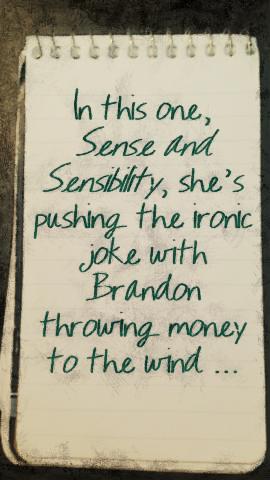 In this one,
Sense and
Sensibility, she's
pushing the ironic
joke with
Brandon
throwing money
to the wind ...